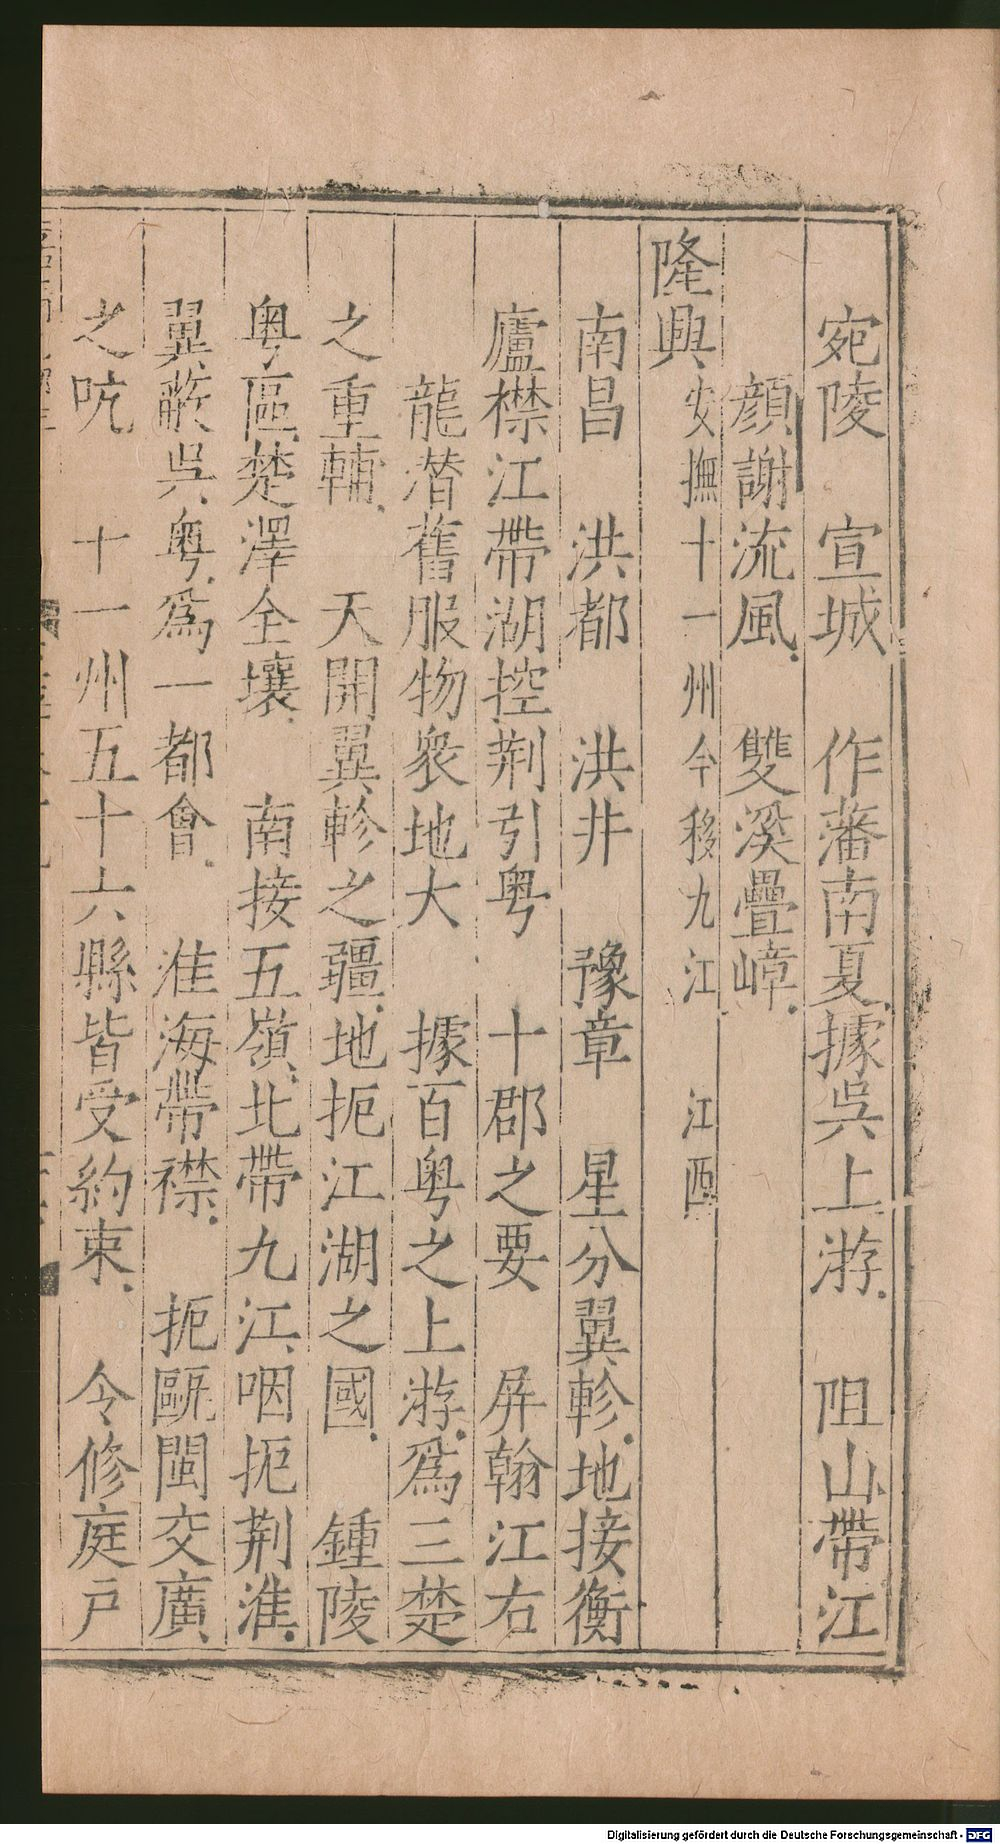 宛陵　宣城　作藩南夏據吳上游　阻山帶江
顏謝流風　雙溪疊嶂
隆興安撫十一州今移九江　江西
南昌　洪都　洪井　豫章　星分翼軫地接衡
廬襟江帶湖控荆引粤　十郡之要　屏翰江右
龍潛舊服物衆地大　據百粤之上游爲三楚
之重輔　天開翼軫之疆地扼江湖之國　鍾陵
粤區楚澤全壤　南接五嶺北帶九江咽扼荆淮
翼蔽吳粤爲一都會　淮海帶襟　扼甌閩交廣
之吭　十一州五十六縣皆受約束　今修庭戸
Digitalisierung gefördert durch die Deutsche Forschungsgemeinschaft - DFG